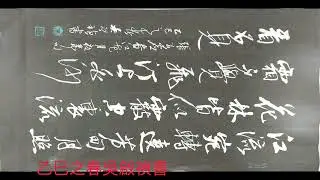 江流宛轉遶芳甸月照
花林皆似霰空裏流
霜不覺飛汀上白沙
看不見
己巳之春吳啟禎書